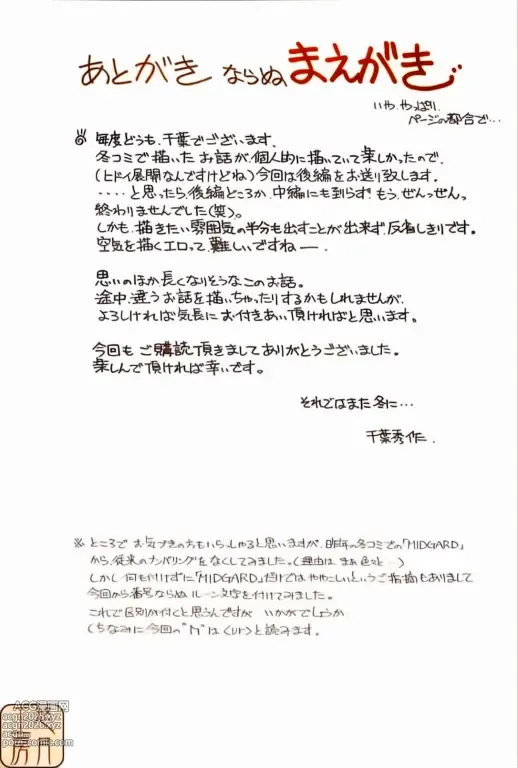 あとがき ならぬ まえがき
いや、やっぱり
ページの都合で…
毎度どうも、千葉でございます。
冬コミで描いたお話が、個人的に描いていて楽しかったので、
(ヒドイ展開なんですけどね)今回は後編をお送り致します。
‥‥と思ったら、後編どころか、中編にも到らず、もう、ぜんっぜんっ
終わりませんでした(笑)。
しかも、描きたい雰囲気の半分も出すことが出来ず、反省しきりです。
空気を描くエロって、難しいですねー。
思いのほか長くなりそうなこのお話。
途中、違うお話を描いちゃったりするかもしれませんが、
よろしければ気長にお付きあい頂ければと思います。
今回もご購読頂きましてありがとうございました。
楽しんで頂ければ幸いです。
それではまた冬に…
千葉秀作.
※ ところでお気づきの方もいらっしゃると思いますが、昨年の冬コミでの「MIDGARD」
から、従来のナンバリングをなくしてみました。(理由は まぁ色々と…)
しかし何も付けずに「MIDGARD」だけでは ややこしいというご指摘もありまして
今回から番号ならぬルーン文字を付けてみました。
これで区別が付くと思うんですが いかがでしょうか
(ちなみに今回の"ᚢ"は〈ur〉と読みます。
ACG漫画网
acgn2023xyz
acgn2026xyz
acgn.
porn-comic.com